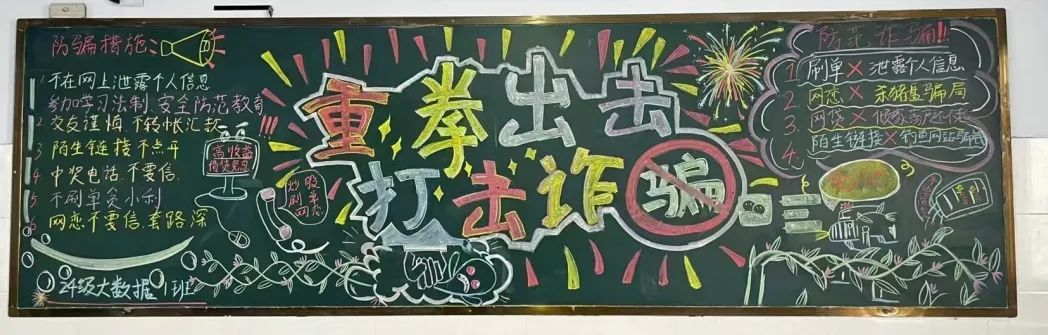 防骗措施:
1 不在网上泄露个人信息
参加学习法制、安全防范教育
2. 交友谨慎,不转帐汇款
3 陌生链接不点开
4 中奖电话不要信.
5 不刷单贪小利
6 网恋不要信,套路深
24级大数据1班
高收益
炒股
刷单
网恋
重拳出击
打击诈骗
防范诈骗!!!
1 刷单×泄露个人信息
2. 网恋×杀猪盘骗局
3. 网贷×
4. 陌生链接×钓鱼网站骗钱